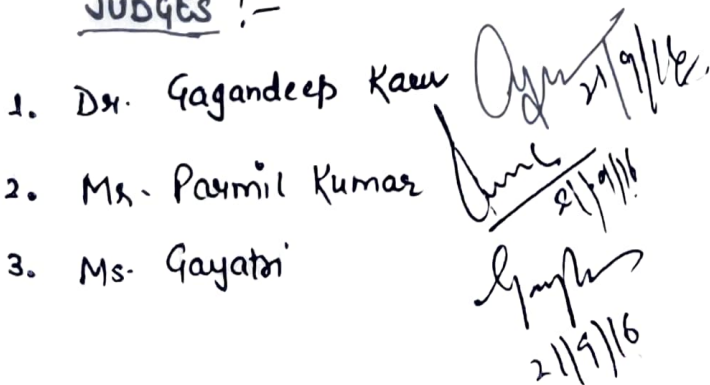 JUDGES :-
1. Dr. Gagandeep Kaur 21/9/16.
2. Mr. Parmil Kumar 21/09/16
3. Ms. Gayatri
21/9/16